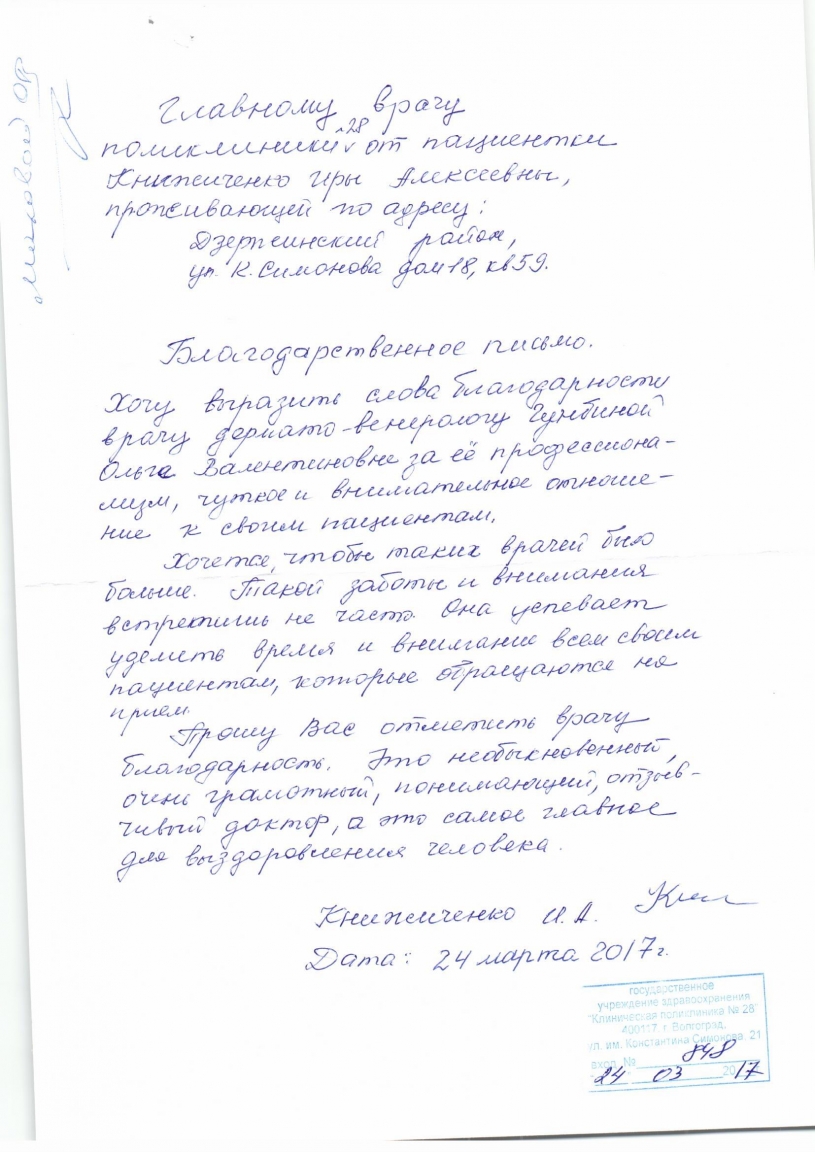 Главному врачу
поликлиники №28 от пациентки
Книжиченко Иры Алексеевны,
проживающей по адресу:
Дзержинский район,
ул. К. Симонова дом 18, кв 59.
Благодарственное письмо.
Хочу выразить слова благодарности
врачу дермато-венерологу Гумбиной
Ольге Валентиновне за её профессиона-
лизм, чуткое и внимательное отноше-
ние к своим пациентам.
Хочется, чтобы таких врачей было
больше. Такой заботы и внимания
встретишь не часто. Она успевает
уделить время и внимание всем своим
пациентам, которые обращаются на
прием.
Прошу Вас отметить врачу
благодарность. Это необыкновенный,
очень грамотный, понимающий, отзыв-
чивый доктор, а это самое главное
для выздоровления человека.
Книжиченко И.А.
Дата: 24 марта 2017г.
государственное
учреждение здравоохранения
"Клиническая поликлиника № 28"
400117, г. Волгоград,
ул. им. Константина Симонова, 21
вход. № 848
24 03 2017